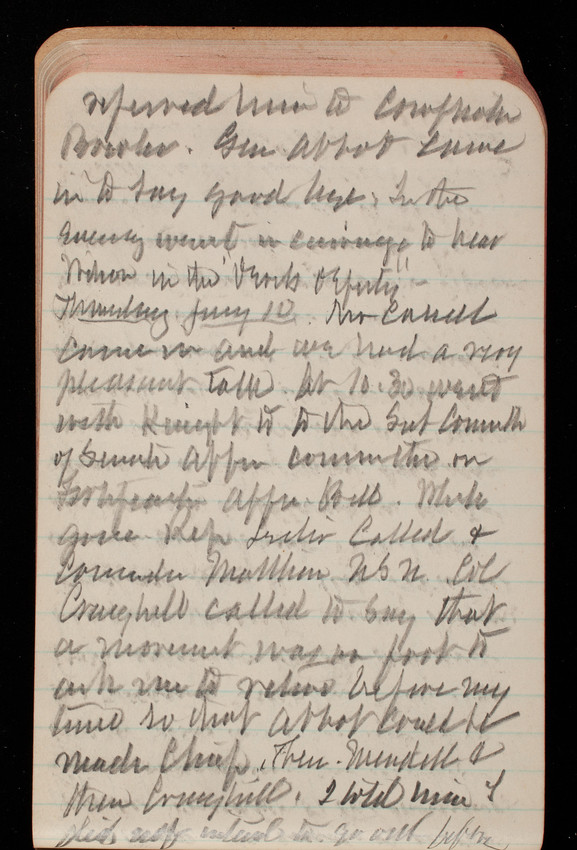 referred him to Comptroller
Bowler. Gen Abbot came
in to say good bye. In the
evening went in carriage to hear
Wilson in the "Devils Deputy" -
Thursday Jany 10. Mr Carroll
came in and we had a very
pleasant talk. At 10.30 went
with Knight to to the Sub Committee
of Senate Appn committee on
Fortification Appn Bill. While
gone Rep called &
Commander Matthews USN. Col
Craighill called to say that
a movement was on foot to
ask me to retire before my
time so that Abbot could be
made Chief, then Mendell &
then Craighill. I told him I
did not intend to go out before